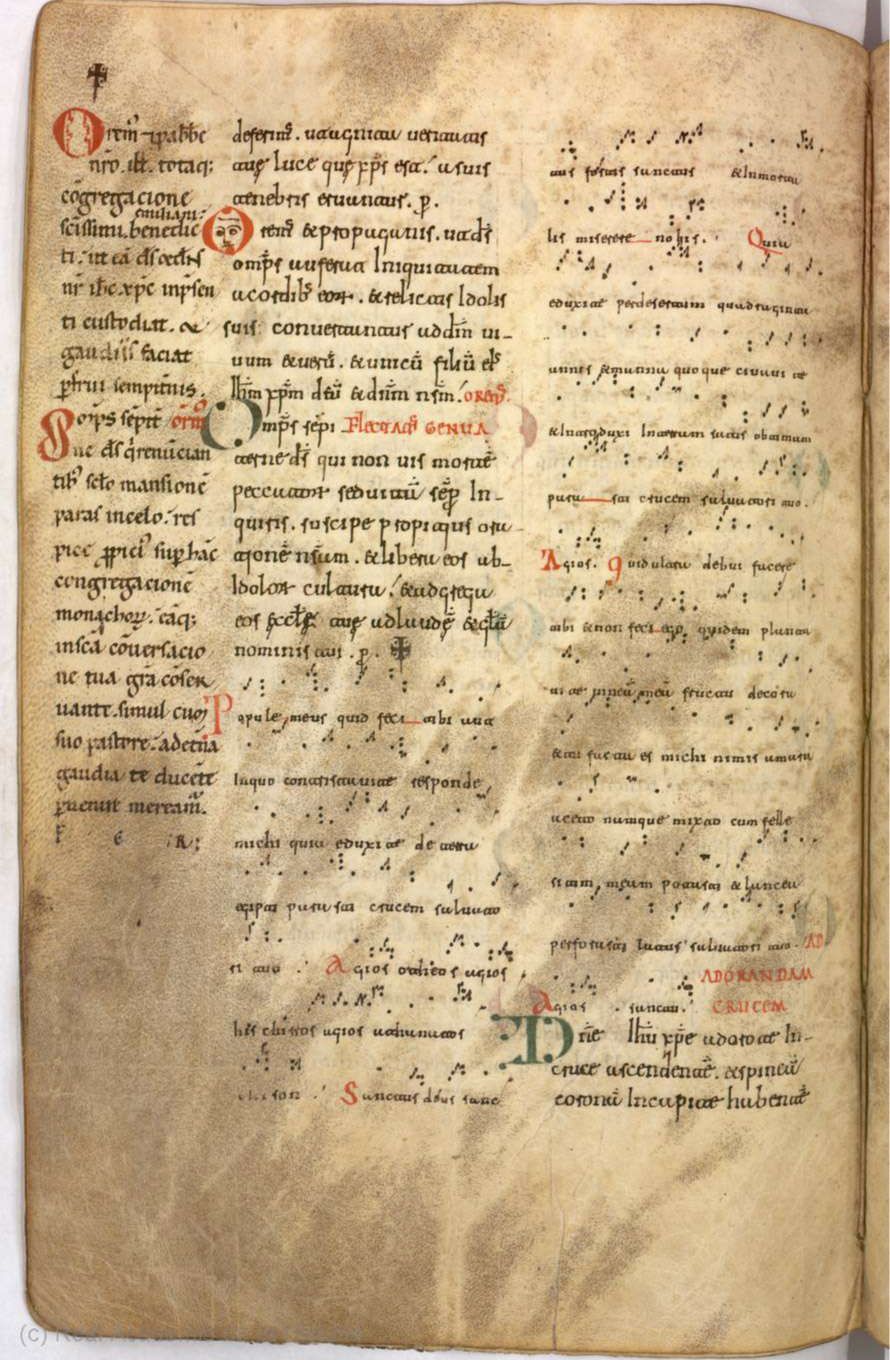 ✝
Orem⁹ p abbe
nr̄o. ill. totaq;
cōgregacione
emiliani
sc̄issimi. benedic
ti. ut ea d̄s
nr̄ ih̄c xp̄c in p̄sen
ti custodiat. &
gaudiis faciat
p̄frui sempit̄nis.
Om̄ps sēpit̄ orem̄
ne d̄s q̄ renūcian
tib; sc̄lo mansionē
paras in celo. res
pice sup̄ hāc
congregacionē
monachoꝝ. eāq;
in sc̄a cōversacio
ne tua gr̄a cōser
vante. simul cū
suo pastore. ad et̄na
gaudia te ducēte
p̄venire meream̄.
deferim̄. ut agnita veritatis
tue luce que xp̄s est. a suis
tenebris eruantur. p̄.
Orem̄ & pro paganis. ut d̄s
omp̄s auferat Iniquitatem
a cordib; eoꝝ. & relictis Idolis
suis convertantur ad d̄m vi-
vum & verū. & unicū filiū ei⁹
Ih̄m xp̄m d̄m & dn̄m nr̄m. orem̄.
Omp̄s sēpi Flectam̄ GENUA
eterne d̄s qui non vis mortē
peccatorum sed vitā sēp̄ In-
quiris. suscipe propitius ora-
tionē nr̄am. & libera eos ab
Idoloꝝ cultura. & adgrega
eos eccl̄e tue ad laudē & gl̄am
nominis tui. p̄. ✝
Popule meus quid feci tibi aut
In quo contristavi te responde
michi quia eduxi te de terra
egipti parasti crucem salvato
ri tuo. Agios otheos agios
his chiros agios athanatos
eleison. Sanctus deus sanc
tus fortis sanctus & Inmorta
lis miserere nobis. Quia
eduxi te per desertum quadraginta
annis & manna quoque cibavi te
& In Introduxi In terram satis obtimam
parasti crucem salvatori tuo.
Agios. Quid ultra debui facere
tibi & non feci ego quidem plantavi
te vineā meā fructu decora
& tu facta es michi nimis amara
aceto namque mixto cum felle
sitim meam potasti & lancea
perforasti latus salvatori tuo. AD
ADORANDAM
Agios. sanctus. CRUCEM
Dn̄e Ih̄u xp̄e adoro te In
cruce ascendentē. & spineā
coronā In capite habentē